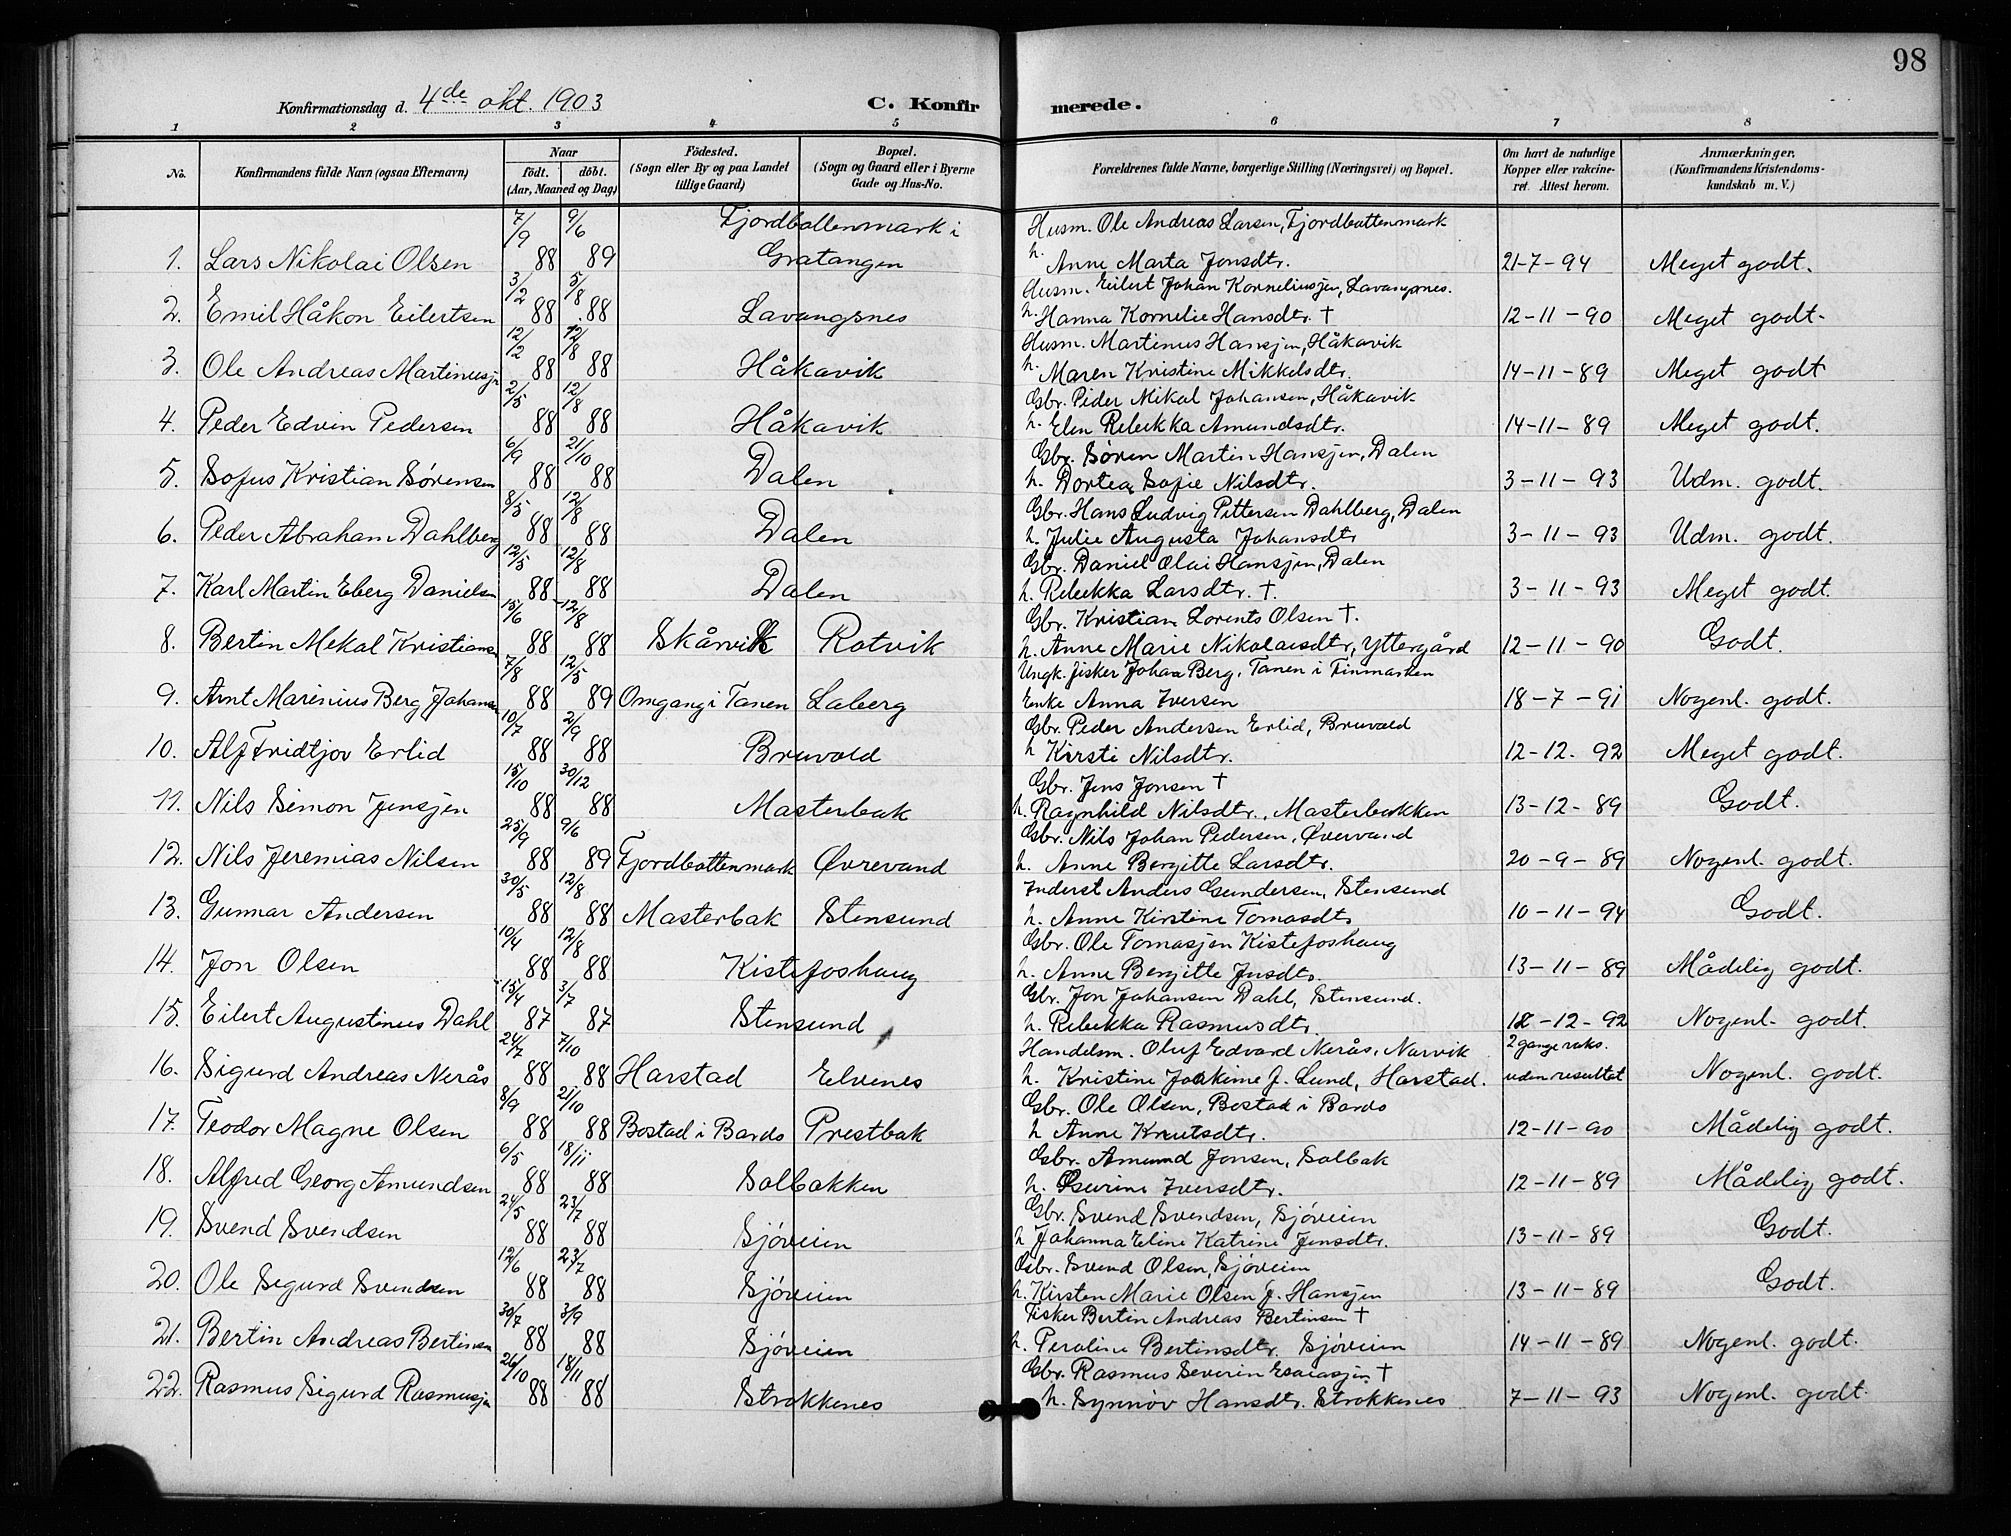 98
Konfirmationsdag d. 4de okt. 1903 C. Konfirmerede.
1 2 3 4 5 6 7 8
No. Konfirmandens fulde Navn (ogsaa Efternavn) Naar födt. döbt. (Aar, Maaned og Dag) Födested. (Sogn eller By og paa Landet tillige Gaard) Bopæl. (Sogn og Gaard eller i Byerne Gade og Hus-No. Forældrenes fulde Navne, borgerlige Stilling (Næringsvei) og Bopæl. Om havt de naturlige Kopper eller vakcineret. Attest herom. Anmærkninger. (Konfirmandens Kristendomskundskab m. V.)
7/9 9/6 Fjordbottenmark i Husm. Ole Andreas Larsen, Fjordbottenmark
1. Lars Nikolai Olsen 88 89 Gratangen h. Anne Marta Jonsdtr. 21-7-94 Meget godt.
3/2 5/8 Husm. Eilert Johan Korneliusjen, Lavangsnes.
2. Emil Håkon Eilertsen 88 88 Lavangsnes h. Hanna Kornelie Hansdtr. † 12-11-90 Meget godt.
12/2 12/8 Husm. Martinus Hansjen, Håkavik
3. Ole Andreas Martinusjn 88 88 Håkavik h. Maren Kristine Mikkelsdtr. 14-11-89 Meget godt
2/5 12/8 Gbr. Peder Mikal Johansen, Håkavik
4. Peder Edvin Pedersen 88 88 Håkavik h. Elen Rebekka Amundsdtr. 14-11-89 Meget godt.
6/9 21/10 Gbr. Søren Martin Hansjen, Dalen
5. Sofus Kristian Sørensen 88 88 Dalen h. Dortea Sofie Nilsdtr. 3-11-93 Udm. godt.
8/5 12/8 Gbr. Hans Ludvig Pittersen Dahlberg, Dalen
6. Peder Abraham Dahlberg 88 88 Dalen h. Julie Augusta Johansdtr 3-11-93 Udm. godt.
12/5 12/8 Gbr. Daniel Olai Hansjen, Dalen
7. Karl Martin Eberg Danielsen 88 88 Dalen h. Rebekka Larsdtr. †. 3-11-93 Meget godt.
15/6 12/8 Gbr. Kristian Lorents Olsen †.
8. Bertin Mekal Kristiansen 88 88 Skårvik Rotvik h. Anne Marie Nikolaisdtr, Yttergård 12-11-90 Godt.
7/8 12/5 Ungk. fisker Johan Berg, Tanen i Finmarken
9. Arnt Marinius Berg Johansen 88 89 Omgang i Tanen Laberg Enke Anna Iversen 18-7-91 Nogenl. godt.
10/7 2/9 Gbr. Peder Andersen Erlid, Bruvold
10. Alf Fridtjov Erlid 88 88 Bruvold h Kirsti Nilsdtr. 12-12-92 Meget godt.
15/10 30/12 Gbr. Jens Jonsen †
11. Nils Simon Jensjen 88 88 Masterbak h. Ragnhild Nilsdtr., Masterbakken 13-12-89 Godt.
25/9 9/6 Gbr. Nils Johan Pedersen, Øvervand
12. Nils Jeremias Nilsen 88 89 Fjordbottenmark Øvrevand h. Anne Bergitte Larsdtr. 20-9-89 Nogenl. godt.
30/5 12/8 Inderst Anders Gundersen, Stensund
13. Gunnar Andersen 88 88 Masterbak Stensund h. Anne Kirstine Tomasdtr 10-11-94 Godt.
10/4 12/8 Gbr. Ole Tomasjen Kistefoshaug
14. Jon Olsen 88 88 Kistefoshaug h. Anne Bergitte Jnsdtr. 13-11-89 Mådelig godt.
15/4 3/7 Gbr. Jon Johansen Dahl, Stensund.
15. Eilert Augustinus Dahl 87 87 Stensund h. Rebekka Rasmusdtr. 12-12-92 Nogenl. godt.
24/7 7/10 Handelsm. Oluf Edvard Nerås, Narvik 2 gange vaks.
16. Sigurd Andreas Nerås 88 88 Harstad Elvenes h. Kristine Joakime f. Lund, Harstad. uden resultat Nogenl. godt.
8/9 21/10 Gbr. Ole Olsen, Bostad i Bardo
17. Teodor Magne Olsen 88 88 Bostad i Bardo Prestbak h Anne Knutsdtr. 12-11-90 Mådelig godt.
6/5 18/11 Gbr. Amund Jonsen, Solbak
18. Alfred Georg Amundsen 88 88 Solbakken h. Iversdtr. 12-11-89 Mådelig godt.
24/5 23/7 Gbr. Svend Svendsen, Sjøveien
19. Svend Svendsen 88 88 Sjøveien h Johanna Eline Katrine Jensdtr. 13-11-89 Godt.
12/6 23/7 Gbr. Svend Olsen, Sjøveien
20. Ole Sigurd Svendsen 88 88 Sjøveien h. Kirsten Marie Olsen f. Hansjen 13-11-89 Godt.
30/7 3/9 Fisker Bertin Andreas Bertinsen †
21. Bertin Andreas Bertinsen 88 88 Sjøveien h. Peroline Bertinsdtr. Sjøveien 14-11-89 Nogenl. godt.
26/10 18/11 Gbr. Rasmus Severin Esaiasjen †
22. Rasmus Sigurd Rasmusjen 88 88 Strokkenes h. Synnøv Hansdtr. Strokkenes 7-11-93 Nogenl. godt.